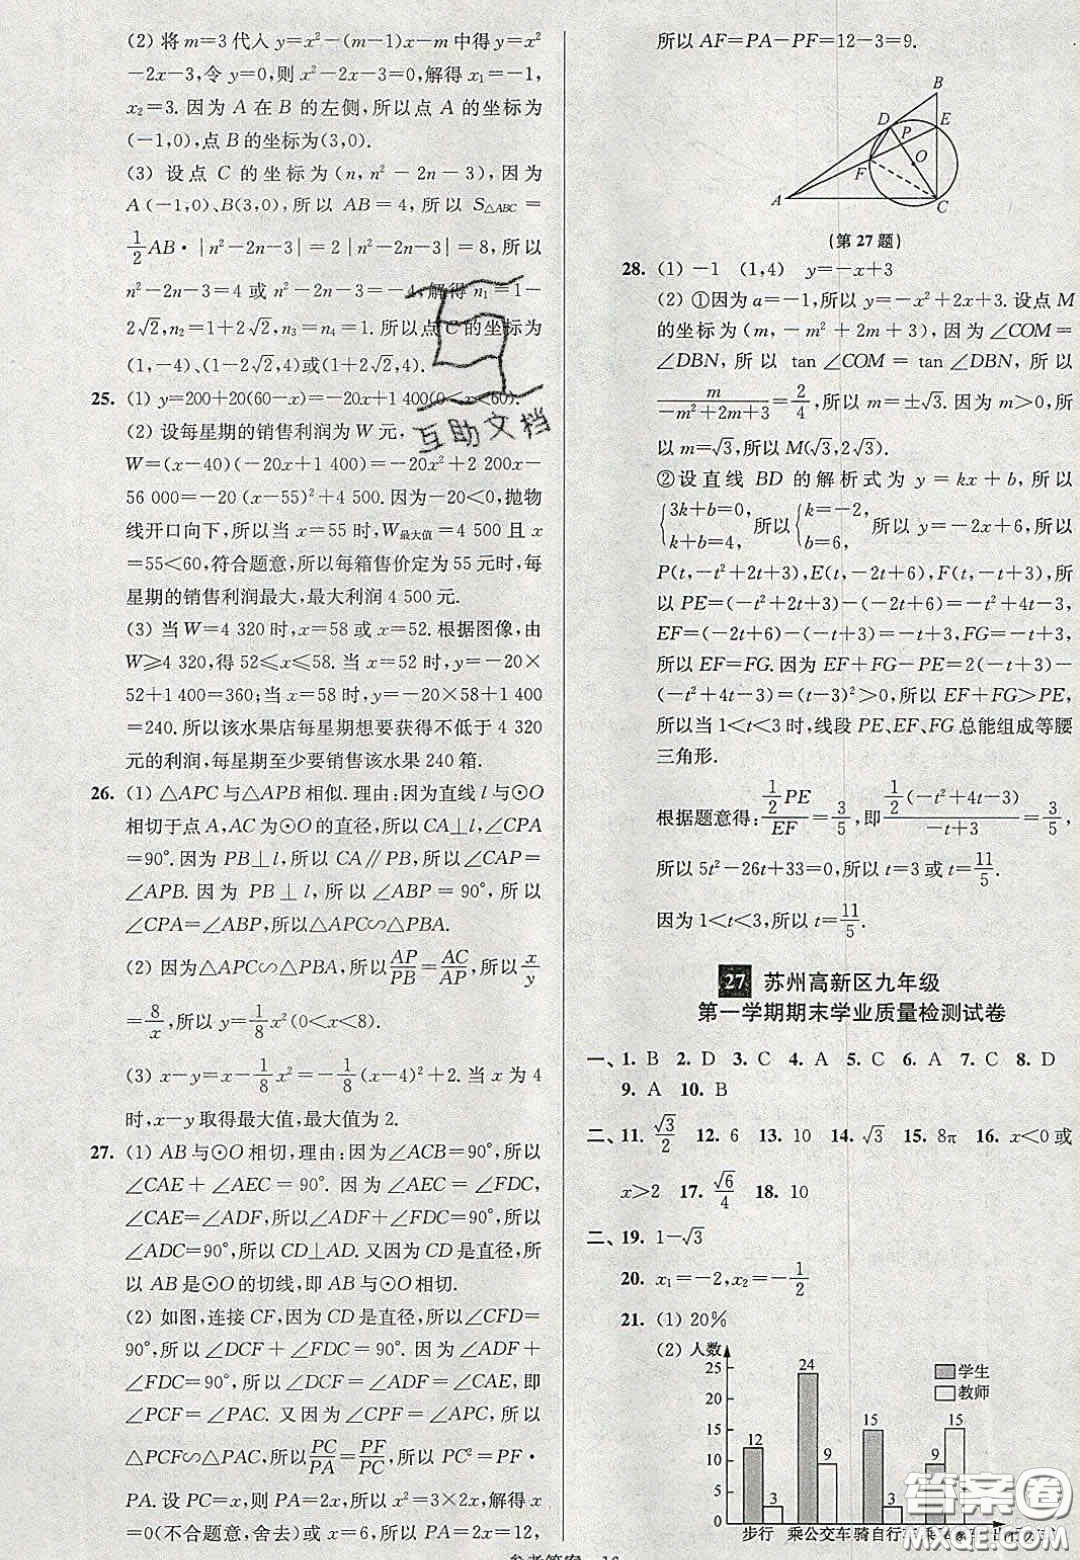 (2) 将 m=3 代入 y=x²-(m-1)x-m 中得 y=x²
-2x-3,令 y=0,则 x²-2x-3=0,解得 x₁=-1,
x₂=3. 因为 A 在 B 的左侧,所以点 A 的坐标为
(-1,0),点 B 的坐标为(3,0).
(3) 设点 C 的坐标为 (n, n²-2n-3),因为
A(-1,0)、B(3,0),所以 AB=4,所以 S△ABC=
1/2 AB·|n²-2n-3|=2|n²-2n-3|=8,所以
n²-2n-3=4 或 n²-2n-3=-4,解得 n₁=1-
2√2,n₂=1+2√2,n₃=n₄=1. 所以点 C 的坐标为
(1,-4)、(1-2√2,4)或(1+2√2,4).
25. (1) y=200+20(60-x)=-20x+1 400(0<x<60).
(2) 设每星期的销售利润为 W 元,
W=(x-40)(-20x+1 400)=-20x²+2 200x-
56 000=-20(x-55)²+4 500. 因为-20<0,抛物
线开口向下,所以当 x=55 时,W最大值=4 500 且 x
=55<60,符合题意,所以每箱售价定为 55 元时,每
星期的销售利润最大,最大利润 4 500 元.
(3) 当 W=4 320 时,x=58 或 x=52. 根据图像,由
W⩾4 320,得 52⩽x⩽58. 当 x=52 时,y=-20×
52+1 400=360;当 x=58 时,y=-20×58+1 400
=240. 所以该水果店每星期想要获得不低于 4 320
元的利润,每星期至少要销售该水果 240 箱.
26. (1) △APC 与△APB 相似. 理由:因为直线 l 与⊙O
相切于点 A,AC 为⊙O 的直径,所以 CA⊥l,∠CPA
=90°. 因为 PB⊥l,所以 CA∥PB,所以∠CAP=
∠APB. 因为 PB⊥l,所以∠ABP=90°,所以
∠CPA=∠ABP,所以△APC∽△PBA.
(2) 因为△APC∽△PBA,所以 AP/PB=AC/AP,所以 x/y
=8/x,所以 y=1/8x²(0<x<8).
(3) x-y=x-1/8x²=-1/8(x-4)²+2. 当 x 为 4
时,x-y 取得最大值,最大值为 2.
27. (1) AB 与⊙O 相切,理由:因为∠ACB=90°,所以
∠CAE+∠AEC=90°. 因为∠AEC=∠FDC,
∠CAE=∠ADF,所以∠ADF+∠FDC=90°,所以
∠ADC=90°,所以 CD⊥AD. 又因为 CD 是直径,所
以 AB 是⊙O 的切线,即 AB 与⊙O 相切.
(2) 如图,连接 CF,因为 CD 是直径,所以∠CFD=
90°,所以∠DCF+∠FDC=90°. 因为∠ADF+
∠FDC=90°,所以∠DCF=∠ADF=∠CAE,即
∠PCF=∠PAC. 又因为∠CPF=∠APC,所以
△PCF∽△PAC,所以 PC/PA=PF/PC,所以 PC²=PF·
PA. 设 PC=x,则 PA=2x,所以 x²=3×2x,解得 x
=0(不合题意,舍去)或 x=6,所以 PA=2x=12,
所以 AF=PA-PF=12-3=9.
B
D
E
P
O
F
A
C
(第 27 题)
28. (1) -1 (1,4) y=-x+3
(2) ①因为 a=-1,所以 y=-x²+2x+3. 设点 M
的坐标为 (m,-m²+2m+3),因为∠COM=
∠DBN,所以 tan∠COM=tan∠DBN,所以
m/(-m²+2m+3)=2/4,所以 m=±√3. 因为 m>0,所
以 m=√3,所以 M(√3,2√3).
②设直线 BD 的解析式为 y=kx+b,所以
{3k+b=0, k+b=4, 所以{k=-2, b=6, 所以 y=-2x+6,所以
P(t,-t²+2t+3),E(t,-2t+6),F(t,-t+3),所
以 PE=(-t²+2t+3)-(-2t+6)=-t²+4t-3,
EF=(-2t+6)-(-t+3)=-t+3,FG=-t+3,
所以 EF=FG. 因为 EF+FG-PE=2(-t+3)-
(-t²+4t-3)=(t-3)²>0,所以 EF+FG>PE,
所以当 1<t<3 时,线段 PE、EF、FG 总能组成等腰
三角形.
根据题意得:(1/2 PE)/EF=3/5,即(1/2(-t²+4t-3))/(-t+3)=3/5,
所以 5t²-26t+33=0,所以 t=3 或 t=11/5.
因为 1<t<3,所以 t=11/5.
27 苏州高新区九年级
第一学期期末学业质量检测试卷
一、1. B 2. D 3. C 4. A 5. C 6. A 7. C 8. D
9. A 10. B
二、11. √3/2 12. 6 13. 10 14. √3 15. 8π 16. x<0 或
x>2 17. √6/4 18. 10
二、19. 1-√3
20. x₁=-2,x₂=-1/2
21. (1) 20%
(2) 人数
25 20 15 10 5 0
学生
教师
12 3 24 9 15 3 9 15
步行 乘公交车 骑自行
互助文档
答案圈
参考答案 16